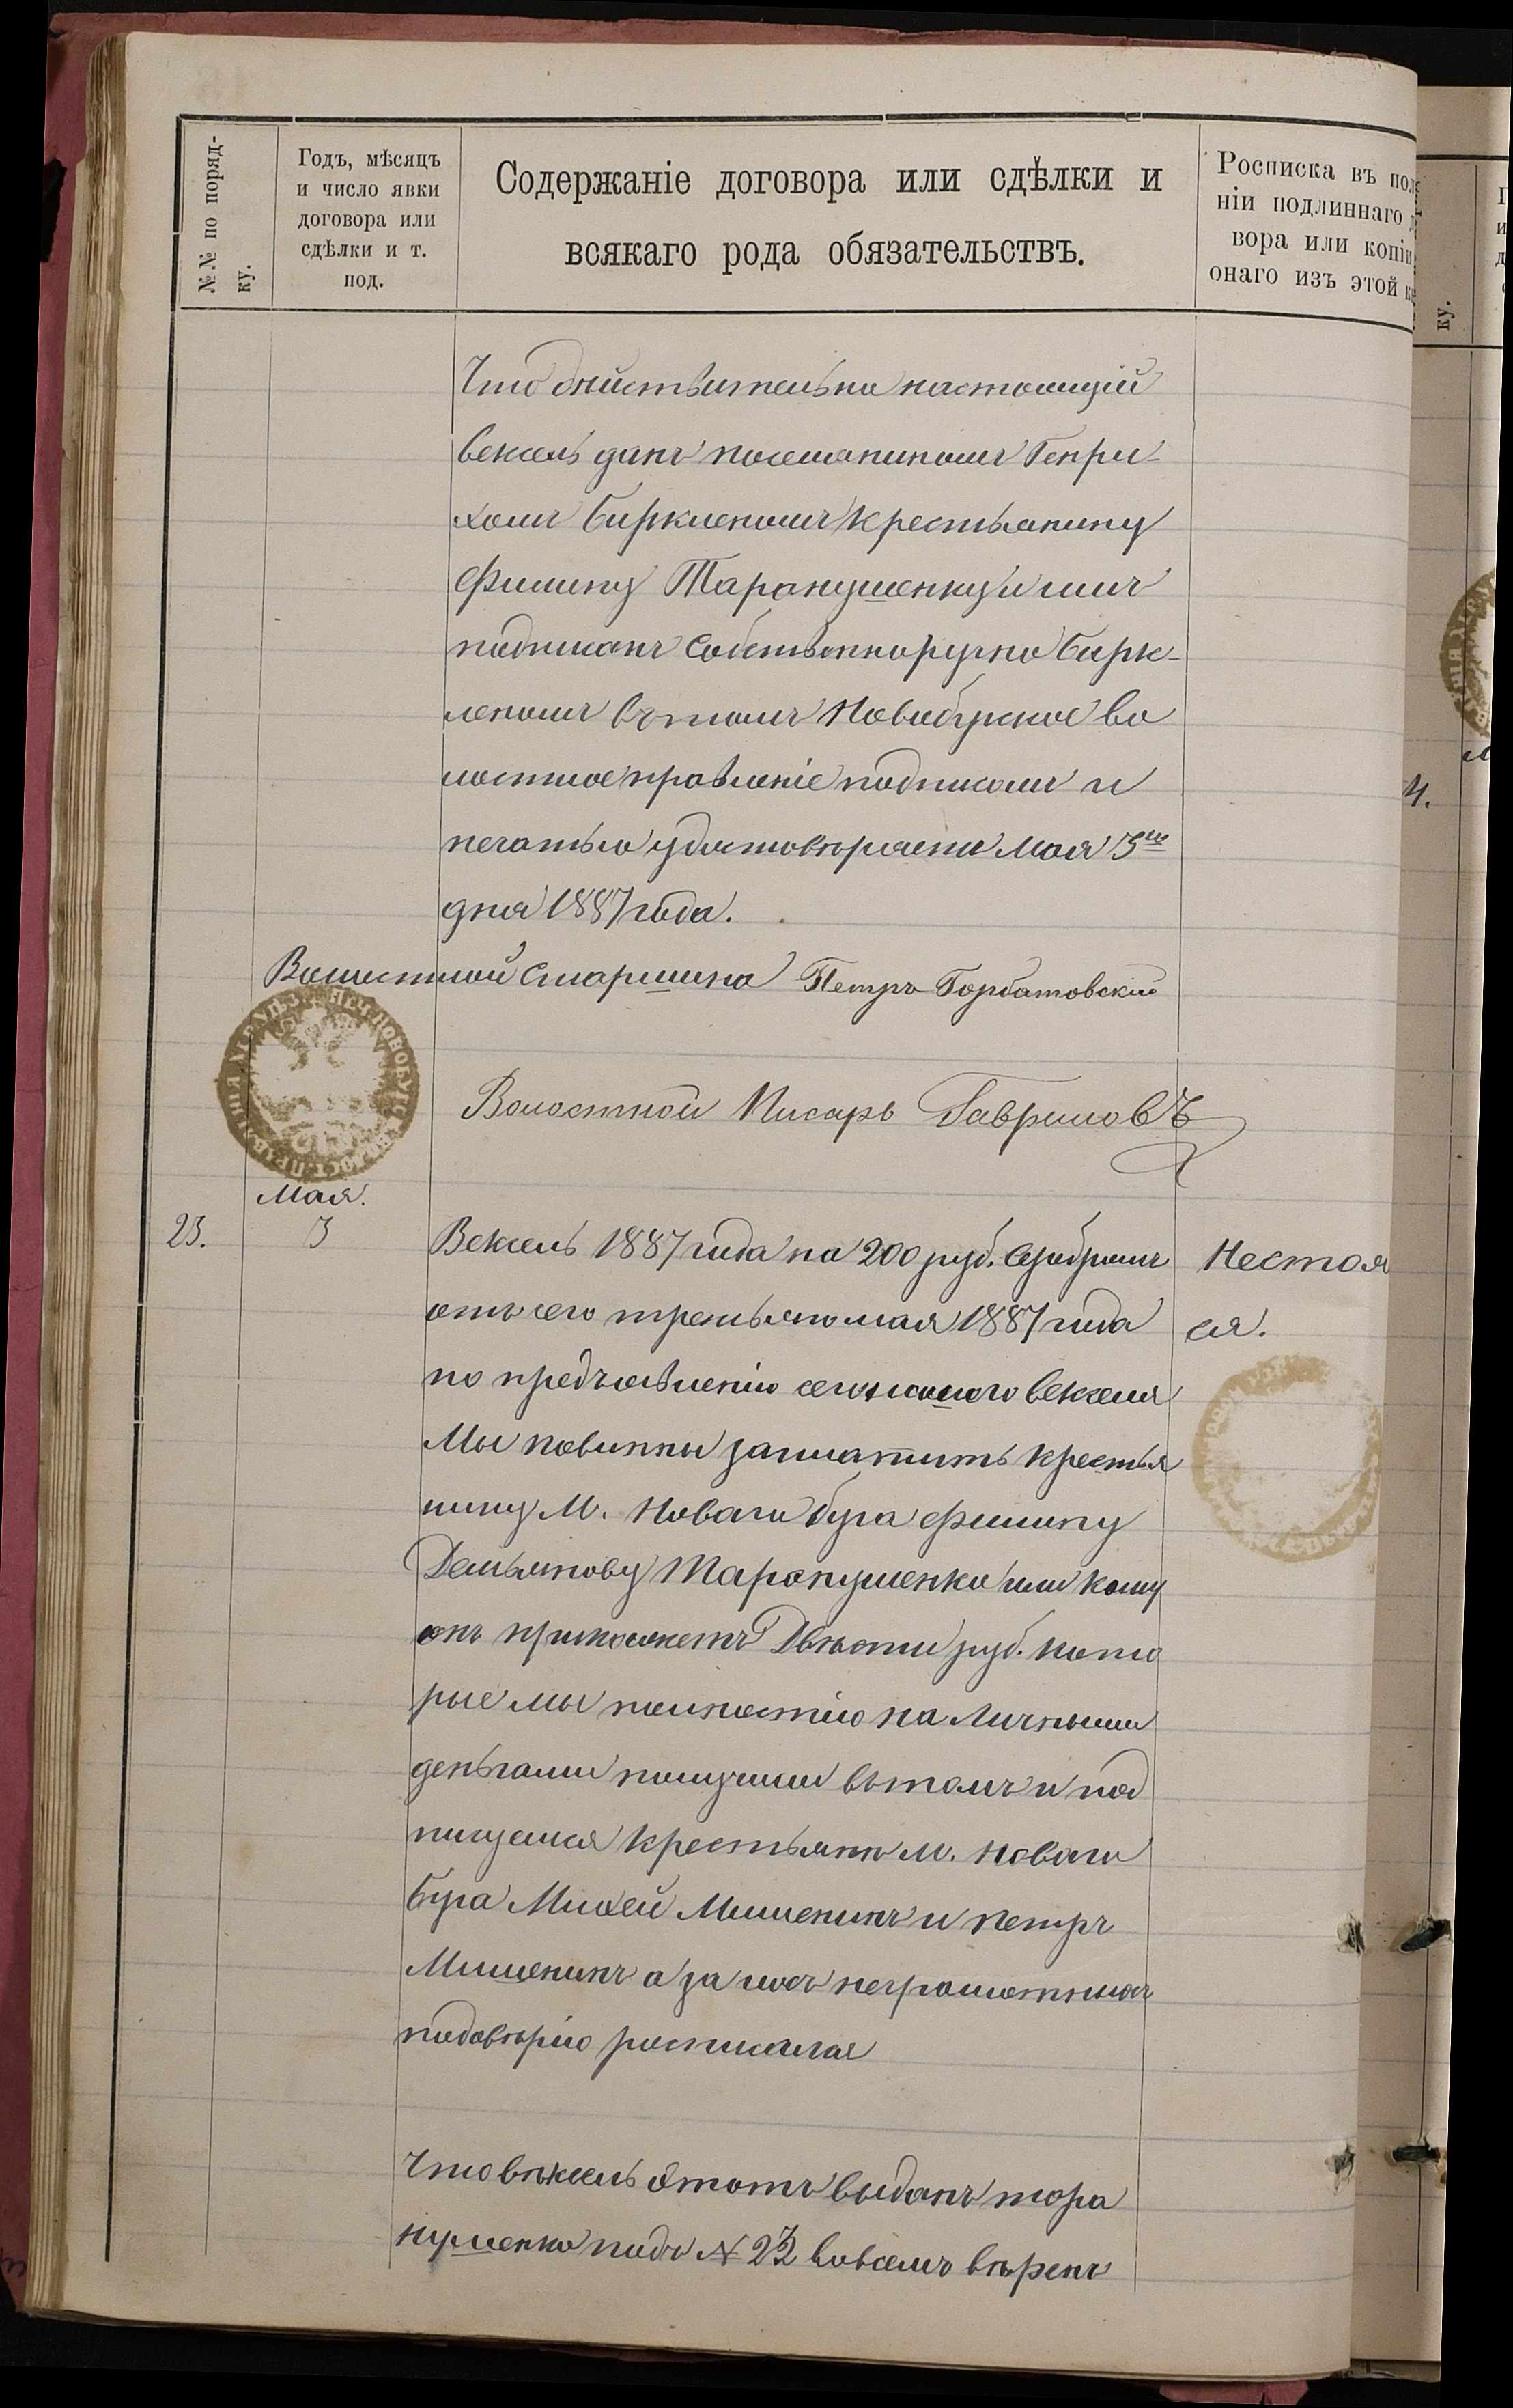 №№ по поряд-
ку.
Годъ, мѣсяцъ
и число явки
договора или
сдѣлки и т.
под.
Содержаніе договора или сдѣлки и
всякаго рода обязательствъ.
Росписка въ пол
ніи подлиннаго
вора или копіи
онаго изъ этой
ку.
Что дѣйствительно настоящій
вексель данъ поселяниномъ Генри-
хомъ Биркленомъ крестьянину
Филипу Таранушенку и имъ
подписанъ собственноручно Бирк-
леномъ въ томъ Новобугское во
лостное правленіе подписомъ и
печатью удостовѣряетъ Мая 3го
дня 1887 года.
Волостной Старшина Петръ Горбатовскій
Волостной Писарь Гавриловъ
Мая.
23. 3 Вексель 1887 года на 200 руб. серебромъ
отъ сего третьяго мая 1887 года
по предъявленію сего нашого векселя
Мы повинны заплатить крестья
нину М. Новаго Буга Филипу
Демьянову Таранушенко или кому
онъ прикажетъ Двѣсти руб. кото
рые мы полностію на личными
деньгами получили въ томъ и под
пишемся крестьяне м. Новаго
Буга Михей Мишенинъ и Петръ
Мишенинъ а за ихъ неграмотныхъ
подовѣрію росписался
Нестоя
ся.
Что вѣксель этотъ выданъ тара
нушенко подъ № 23 вовсемъ вѣренъ
4.